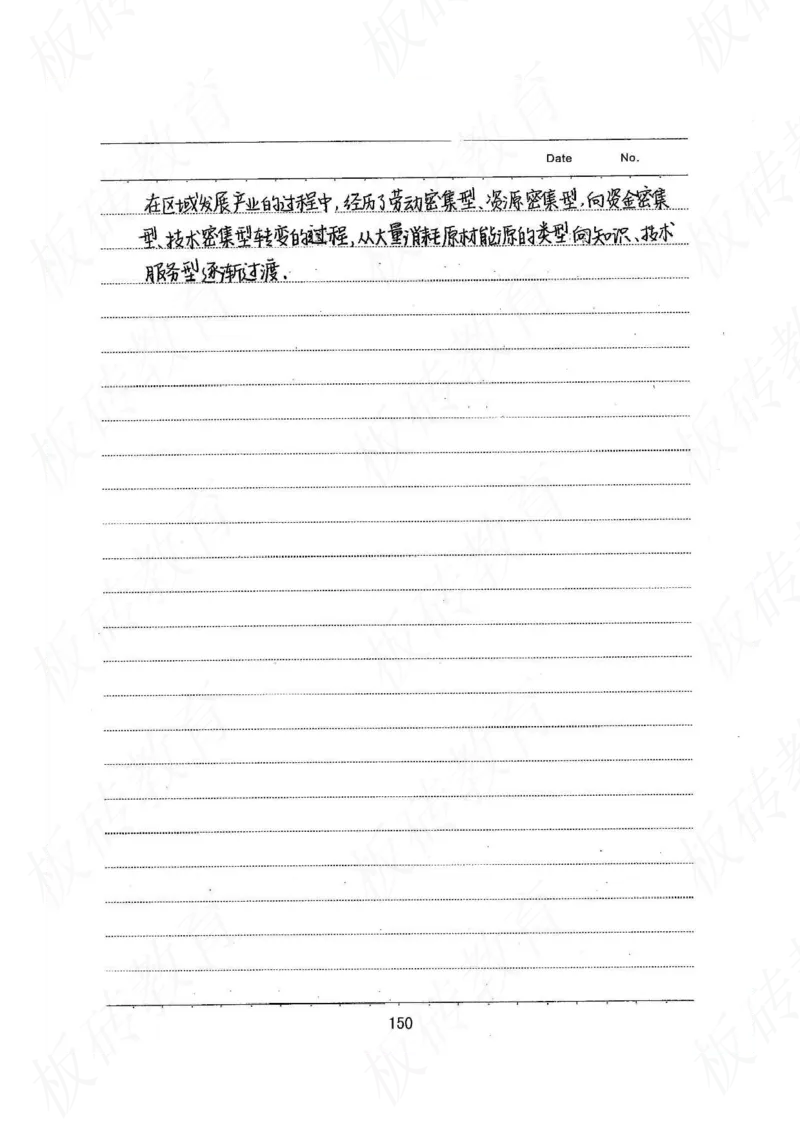 Date No.
在区域发展产业的过程中,经历了劳动密集型、资源密集型,向资金密集
型、技术密集型转变的过程,从大量消耗原材能源的类型向知识、技术
服务型逐渐过渡.
150
板砖教育